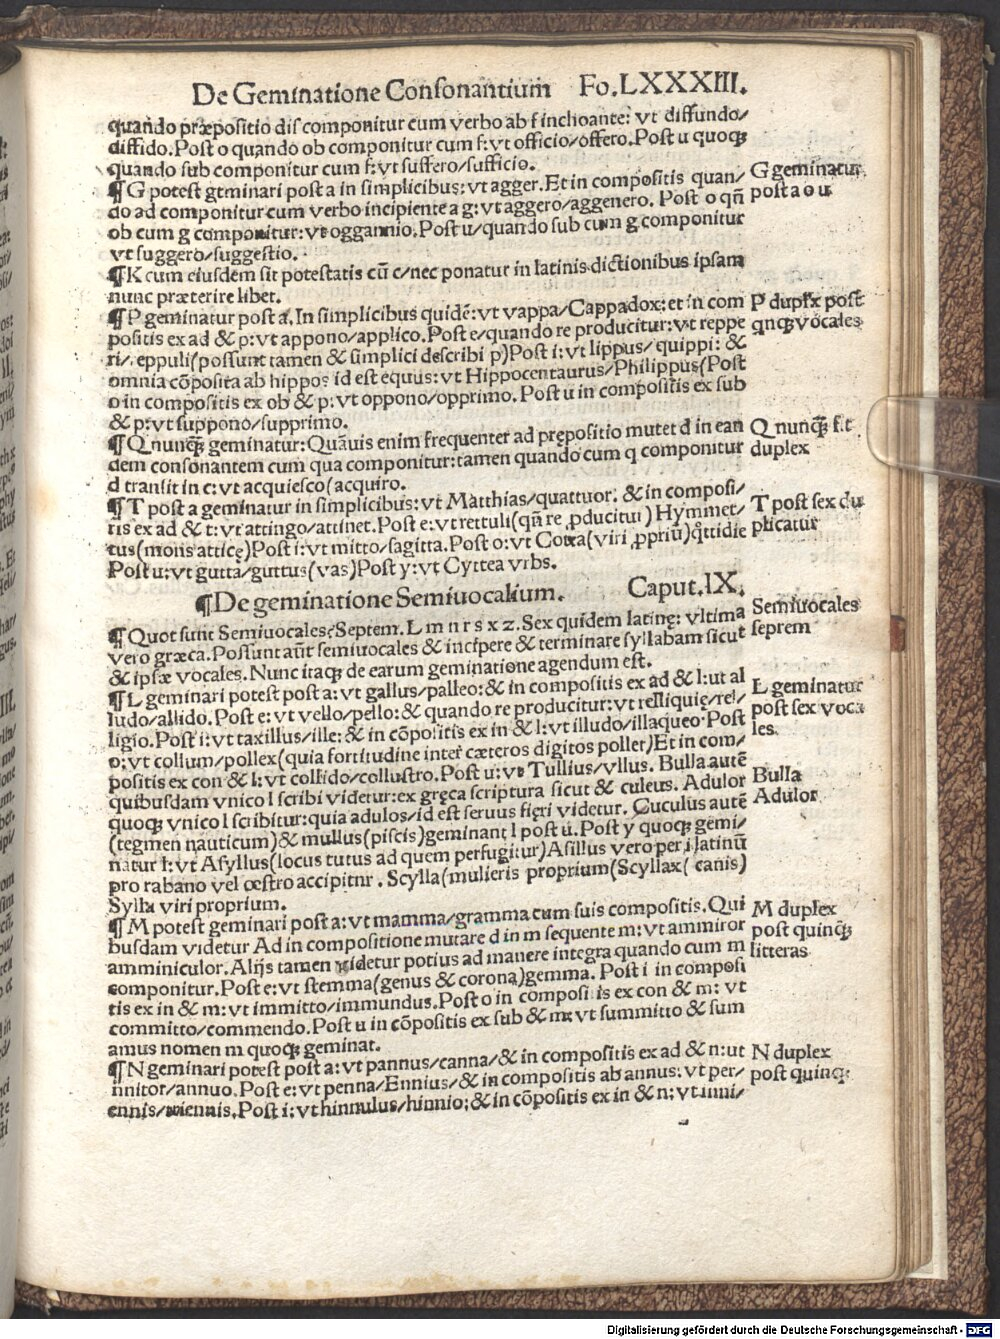 De Geminatione Consonantium Fo.LXXXIII.
quando præpositio dis componitur cum verbo ab f inchoante: vt diffundo/
diffido. Post o quando ob componitur cum f: vt officio/offero. Post u quoqꝫ
quando sub componitur cum f: vt suffero/sufficio.
¶ G potest geminari post a in simplicibus: vt agger. Et in compositis quan/
do ad componitur cum verbo incipiente a g: vt aggero/aggenero. Post o qñ
ob cum g componitur: vt oggannio. Post u/quando sub cum g componitur
vt suggero/suggestio.
G geminatur
post a o u
¶ K cum eiusdem sit potestatis cū c/nec ponatur in latinis dictionibus ipsam
nunc præterire libet.
¶ P geminatur post a. In simplicibus quidē: vt vappa/Cappadox: et in com
positis ex ad & p: vt appono/applico. Post e/quando re producitur: vt reppe
ri/eppuli(possunt tamen & simplici describi p)Post i: vt lippus/quippi: &
omnia cōposita ab hippos id est equus: vt Hippocentaurus/Philippus(Post
o in compositis ex ob & p: vt oppono/opprimo. Post u in compositis ex sub
& p: vt suppono/supprimo.
P duplx post
qnqꝫ vocales
¶ Q nunqꝫ̄ geminatur: Quāuis enim frequenter ad prępositio mutet d in ean
dem consonantem cum qua componitur: tamen quando cum q componitur
d transit in c: vt acquiesco(acquiro.
Q nunqꝫ̄ f.t
duplex
¶ T post a geminatur in simplicibus: vt Matthias/quattuor. & in composi/
tis ex ad & t: vt attingo/attinet. Post e: vt rettuli(qñ re ꝓducitur) Hymmet/
tus(mons atticę)Post i: vt mitto/sagitta. Post o: vt Cotta(viri ꝓpriū)qttidie
Post u: vt gutta/guttus(vas)Post y: vt Cyttea vrbs.
T post sex du
plicatur
¶ De geminatione Semiuocalium. Caput.IX.
¶ Quot sunt Semiuocales? Septem. L m n r s x z. Sex quidem latinę: vltima
vero græca. Possunt aūt semiuocales & incipere & terminare syllabam sicut
& ipsæ vocales. Nunc itaqꝫ de earum geminatione agendum est.
Semiuocales
septem
¶ L geminari potest post a: vt gallus/palleo: & in compositis ex ad & l: ut al
ludo/allido. Post e: vt vello/pello: & quando re producitur: vt relliquię/rel/
ligio. Post i: vt taxillus/ille: & in cōpositis ex in & l: vt illudo/illaqueo. Post
o: vt collum/pollex(quia fortitudine inter cæteros digitos pollet)Et in com/
positis ex con & l: vt collido/collustro. Post u: vt Tullius/vllus. Bulla autē
quibusdam vnico l scribi videtur: ex gręca scriptura sicut & culeus. Adulor
quoqꝫ vnico l scribitur: quia adulos/id est seruus fieri videtur. Cuculus autē
(tegmen nauticum)& mullus(piscis)geminant l post u. Post y quoqꝫ gemi/
natur l: vt Asyllus(locus tutus ad quem perfugitur)Asillus vero per i latinū
pro rabano vel œstro accipitur. Scylla(mulieris proprium(Scyllax( canis)
Sylla viri proprium.
L geminatur
post sex voca
les.
Bulla
Adulor
¶ M potest geminari post a: vt mamma/gramma cum suis compositis. Qui
busdam videtur Ad in compositione mutare d in m sequente m: vt ammiror
amminiculor. Alijs tamen videtur potius ad manere integra quando cum m
componitur. Post e: vt stemma(genus & corona)gemma. Post i in composi
tis ex in & m: vt immitto/immundus. Post o in composi is ex con & m: vt
committo/commendo. Post u in cōpositis ex sub & m: vt summitto & sum
amus nomen m quoqꝫ geminat.
M duplex
post quinqꝫ
litteras
¶ N geminari potest post a: vt pannus/canna/& in compositis ex ad & n: ut
innitor/annuo. Post e: vt penna/Ennius/& in compositis ab annus: vt per/
ennis/biennis. Post i: vt hinnulus/hinnio: & in cōpositis ex in & n: vt inni/
N duplex
post quinqꝫ
Digitalisierung gefördert durch die Deutsche Forschungsgemeinschaft - DFG